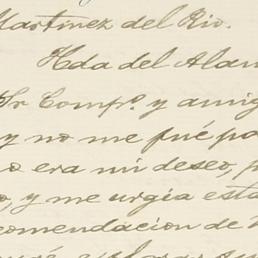 Martinez del Rio.
Hda del Alam
Sr Compº. y amig
y no me fué po
o era mi deseo, p
o, y me urgia esta
comendacion de